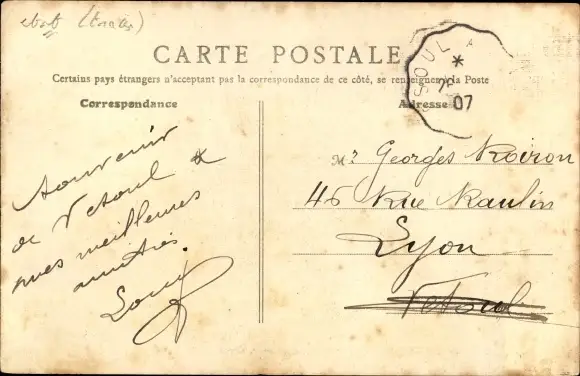 CARTE POSTALE
Certains pays étrangers n'acceptant pas la correspondance de ce côté, se renseigner à la Poste
Correspondance
Adresse
Souvenir
de Vesoul &
mes meilleures
amitiés.
Mr Georges
45 Rue
Lyon
Vesoul
VESOUL A
*
07